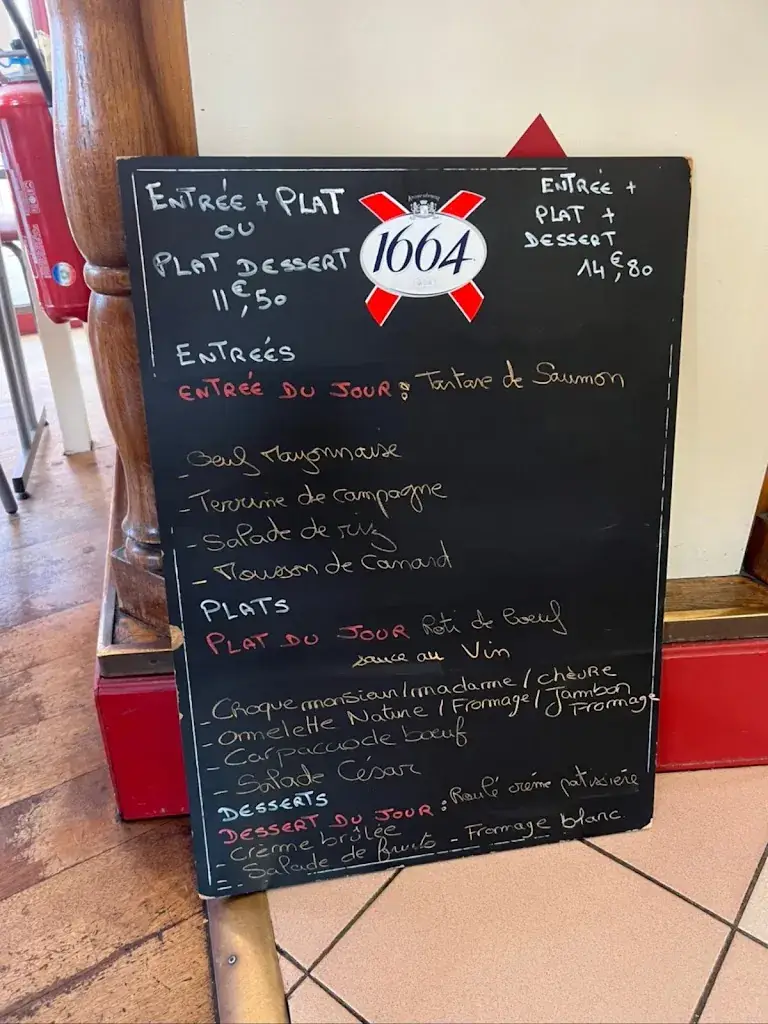 ENTRÉE + PLAT
OU
PLAT DESSERT
11€,50
1664
ENTRÉE +
PLAT +
DESSERT
14€,80
ENTRÉES
ENTRÉE DU JOUR : Tartare de Saumon
- Oeuf Mayonnaise
- Terrine de campagne
- Salade de riz
- Mousson de Canard
PLATS
PLAT DU JOUR Roti de boeuf
sauce au Vin
- Croque monsieur/madame/chèvre
- Omelette Nature / Fromage / Jambon Fromage
- Carpaccio de boeuf
- Salade César
DESSERTS
DESSERT DU JOUR : Roulé crème patissière
- Crème brûlée
- Salade de fruits - Fromage blanc